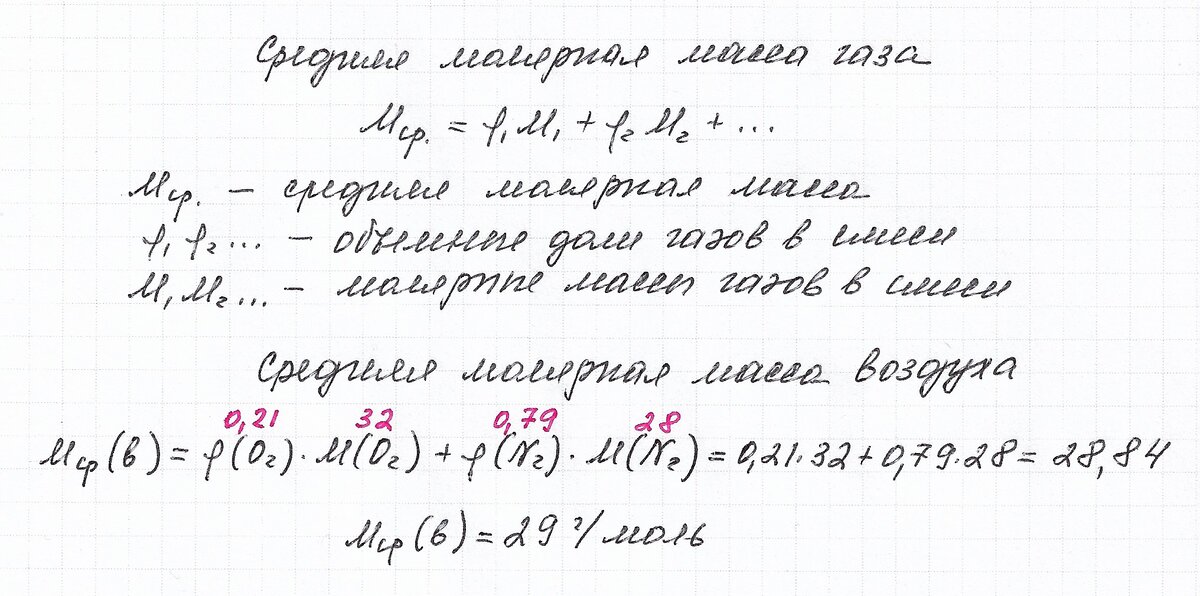 Средняя молярная масса газа
Mср. = φ₁M₁ + φ₂M₂ + ...
Mср. – средняя молярная масса
φ₁ φ₂ ... – объемные доли газов в смеси
M₁ M₂ ... – молярные массы газов в смеси
Средняя молярная масса воздуха
0,21 32 0,79 28
Mср(в) = φ(O₂)·M(O₂) + φ(N₂)·M(N₂) = 0,21·32 + 0,79·28 = 28,84
Mср(в) = 29 г/моль